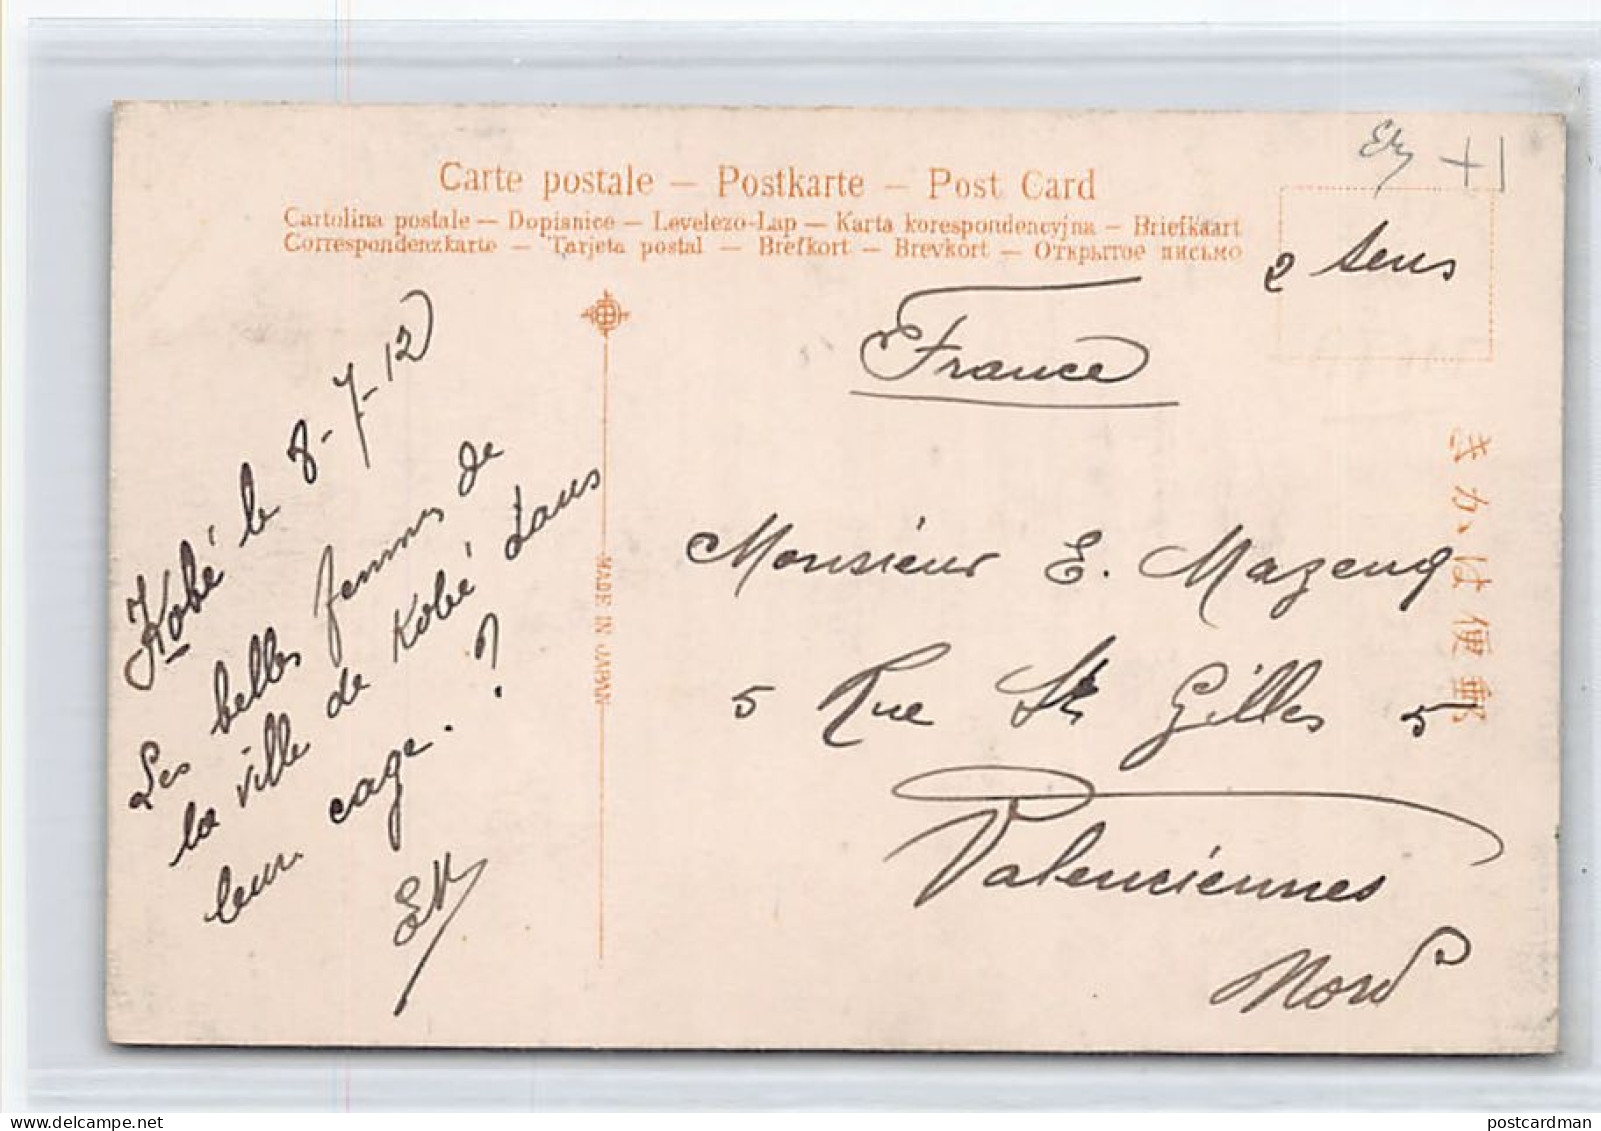 Carte postale — Postkarte — Post Card
Cartolina postale — Dopisnice — Levelezo-Lap — Karta korespondencyjna — Briefkaart
Correspondenzkarte — Tarjeta postal — Brefkort — Brevkort — Открытое письмо
+1
2 sens
France
Kobé le 8-7-12
Les belles femmes de
la ville de Kobé dans
leur cage. ?
MADE IN JAPAN
Monsieur E. Mazeng
5 Rue St Gilles 5
Valenciennes
Nord
きかは便郵
postcardman